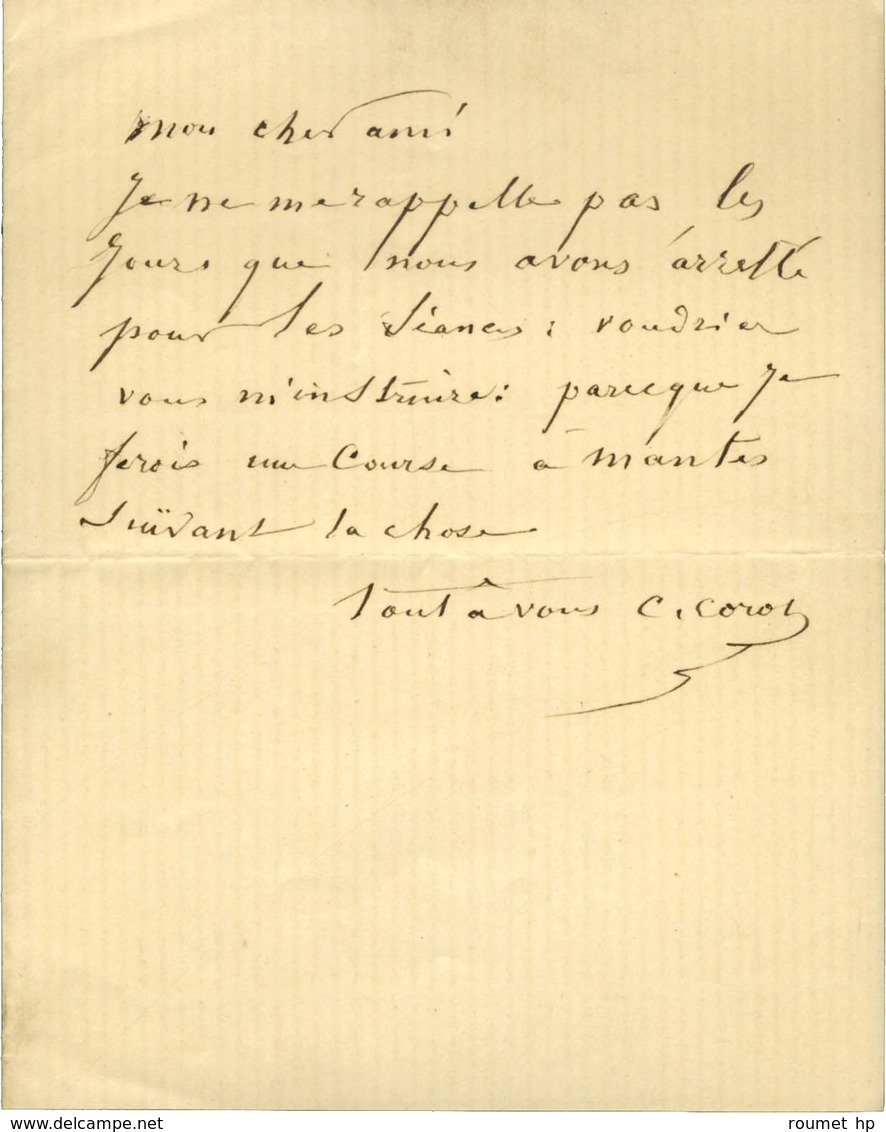 Mon cher ami
Je ne me rappelle pas les
Jours que nous avons arretté
pour les séances : voudriez
vous m'instruire : parceque Je
ferois une Course à Mantes
suïvant la chose
tout à vous C. Corot
www.delcampe.net
roumet hp